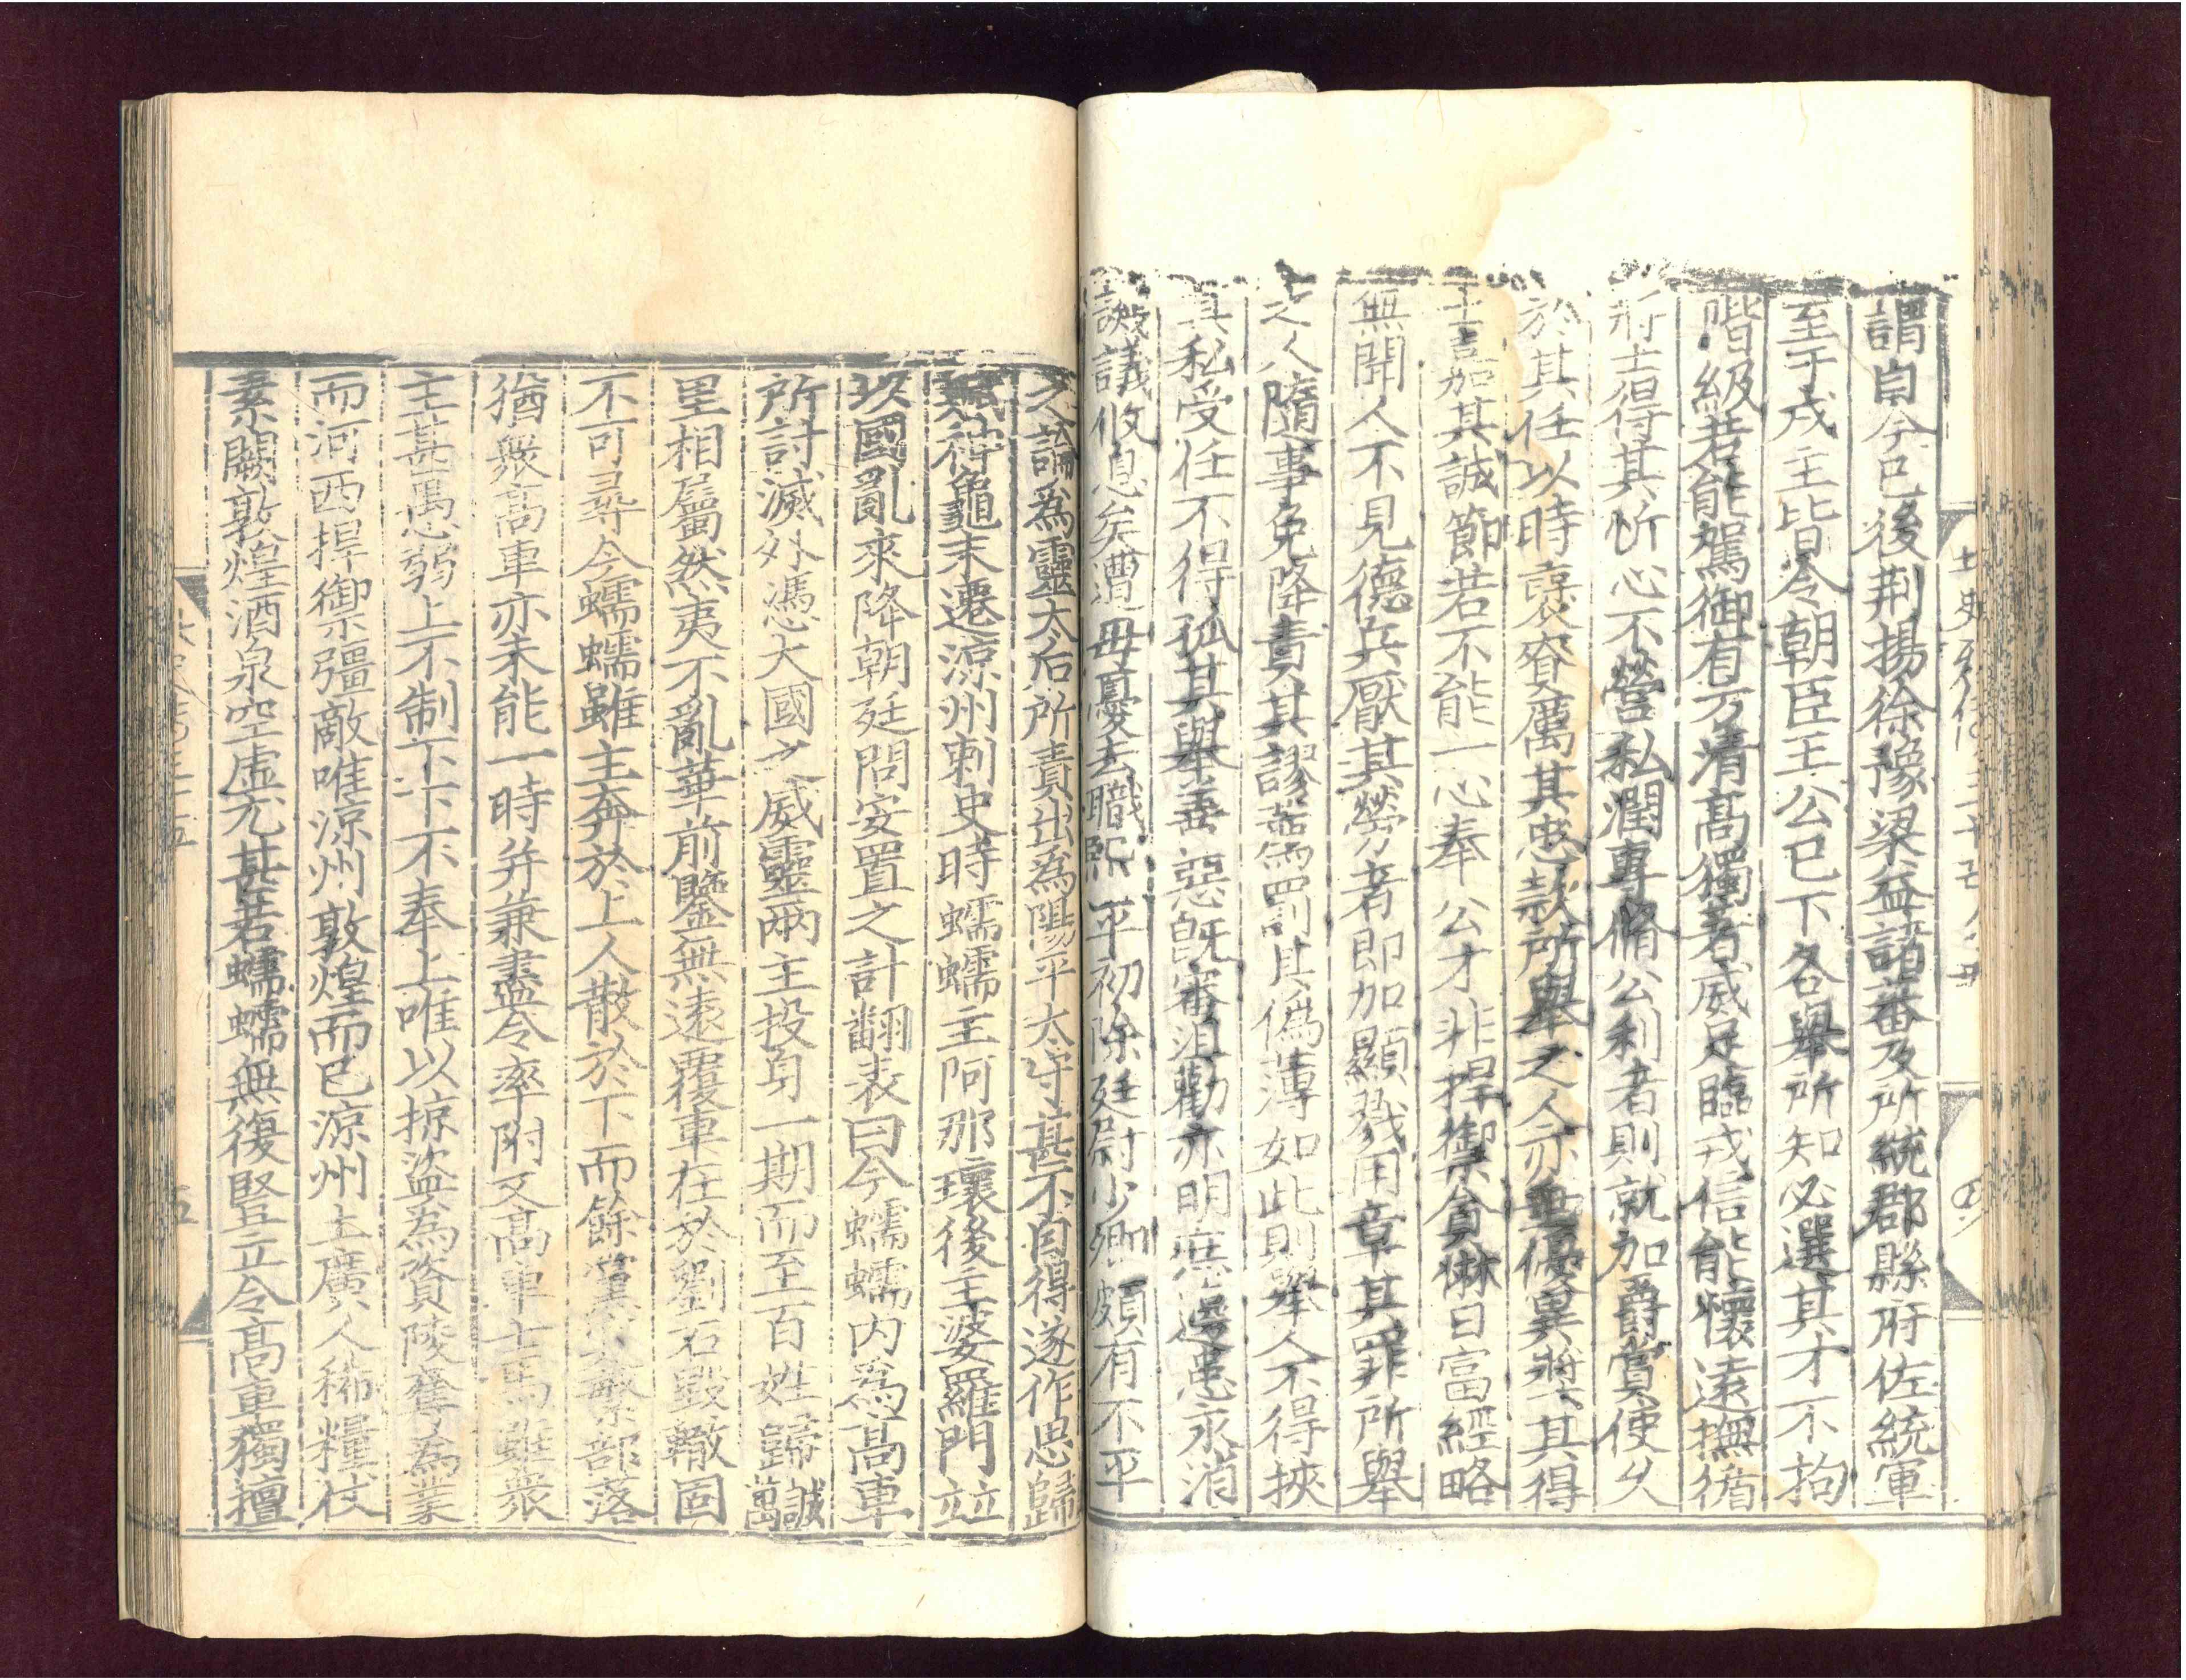 謂自今已後荆揚徐豫梁益諸蕃及所統郡縣府佐統軍
至于戍主皆令朝臣王公已下各舉所知必選其才不拘
階級若能駕御有方清髙獨著威足臨戎信能懷遠撫循
將士得其忻心不營私潤專脩公利者則就加爵賞使久
於其任以時襃賚厲其忠款所舉之人亦垂優異奬其得
士嘉其誠節若不能一心奉公才非捍禦貪惏日富經略
無聞人不見德兵厭其勞者即加顯戮用章其罪所舉
之人隨事免降責其謬薦罰其僞薄如此則舉人不得挾
其私受任不得孤其舉善惡旣審沮勸亦明庶邊患永消
譏議攸息矣遭母憂去職熙平初除廷尉少卿頗有不平
之論爲靈太后所責出爲陽平太守甚不自得遂作思歸
賦神龜末遷涼州刺史時蠕蠕主阿那瓌後主婆羅門竝
以國亂來降朝廷問安置之計翻表曰今蠕蠕内爲髙車
所討滅外憑大國之威靈兩主投身一期而至百姓歸誠萬
里相屬然夷不亂華前鑒無遠覆車在於劉石毀轍固
不可尋今蠕蠕雖主奔於上人散於下而餘黨實繁部落
猶衆髙車亦未能一時并兼盡令率附又髙車士馬雖衆
主甚愚弱上不制下下不奉上唯以掠盜爲資陵奪爲業
而河西捍禦彊敵唯涼州敦煌而已涼州土廣人稀糧仗
素闕敦煌酒泉空虚尤甚若蠕蠕無復豎立令髙車獨擅